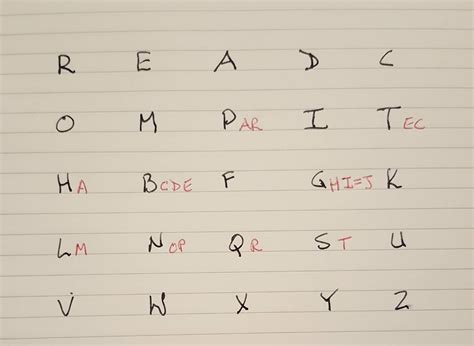 R E A D C
O M PAR I TEC
HA BCDE F GHI=J K
LM NOP QR ST U
V W X Y Z